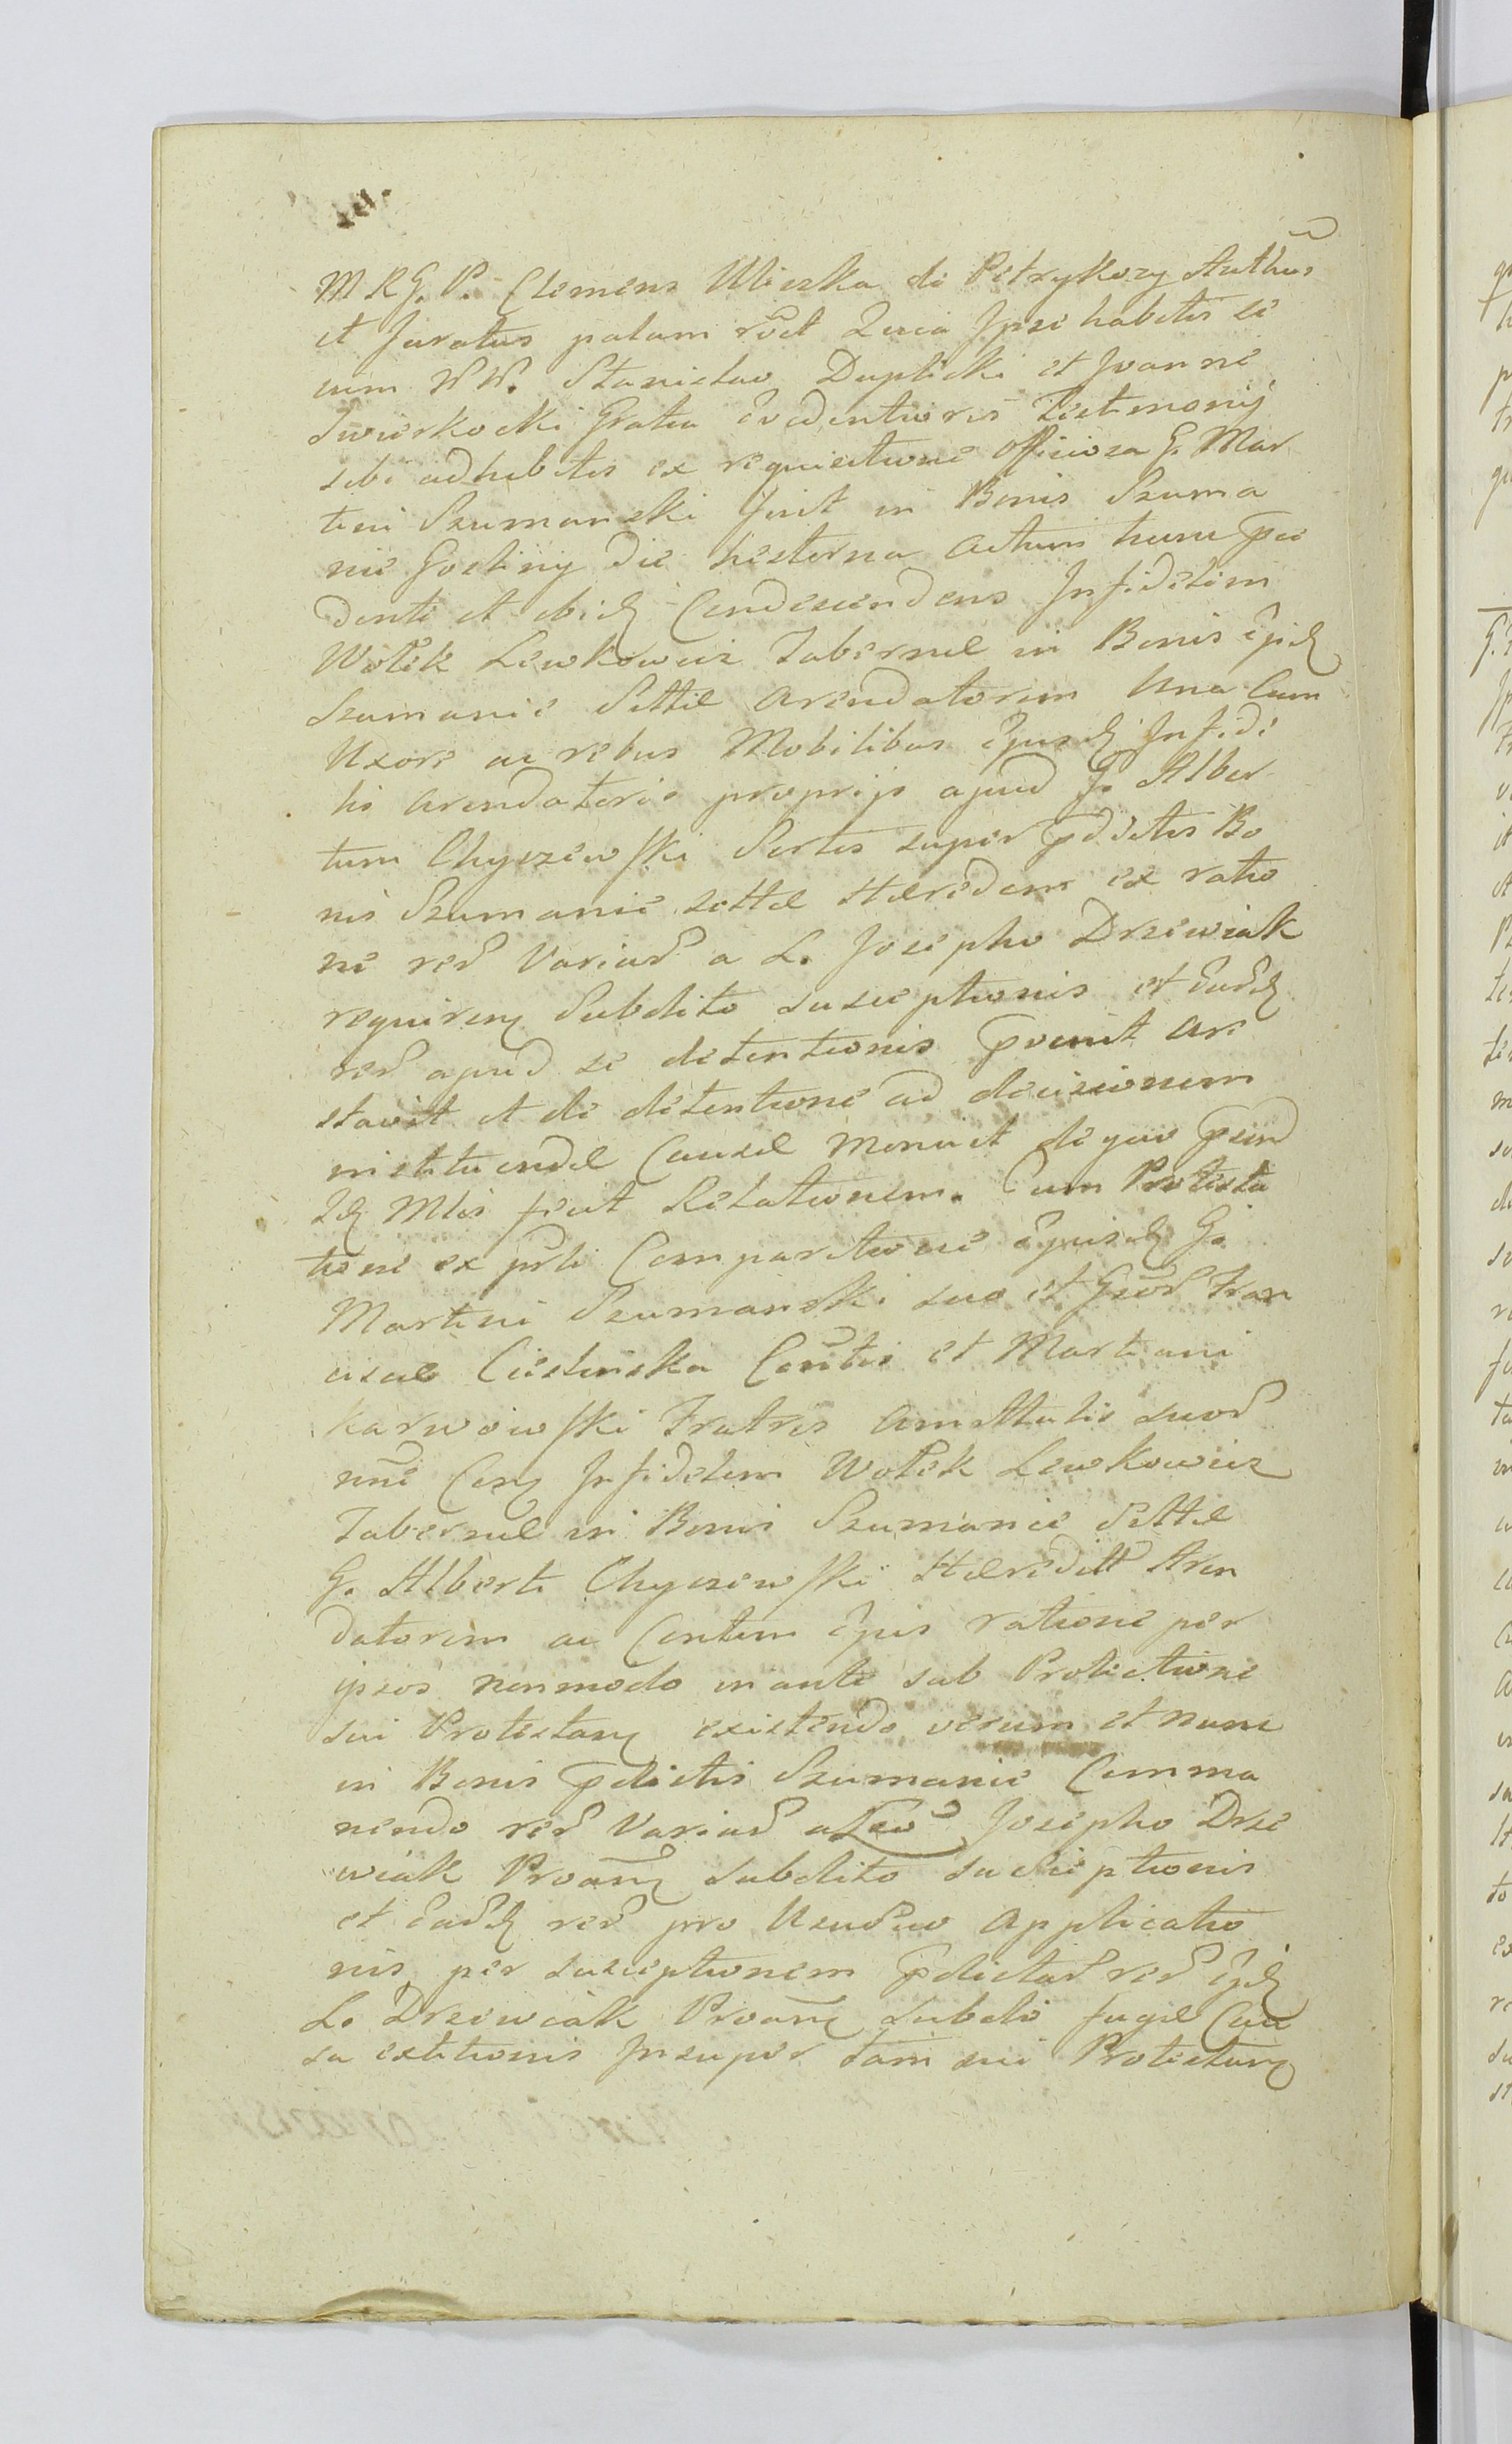 M R G. P. Clemens Uliezka de Petrykozy Authus
et Juratus palam rōct Quia Ipse habitis se
cum NN. Stanislao Duplicki et Joanne
Swierkocki Gratia Evidentioris Testimonij
sibi adhibitis ex requisitione officiosa G. Mar
tini Szumanski fuit in Bonis Szuma
nie Gostiny die hesterna Actum hunc prae
denti et ibidq Condescendens Infidelem
Wolek Lewkowicz Tabernae in Bonis ejdq
Szumanie Sittae Arendatorem Una Cum
Uxore ac rebus Mobilibus Ejusdq Infide
lis Arendatoris proprijs apud G. Alber
tum Chyczewski Sortis super pdictis Bo
nis Szumanie sittae Haeredem ex ratio
ne rer Variar a L. Josepho Drzewiak
requirenq Subdito susceptionis et Ear̄dq
rer apud se detentionis pvenit Are
stavit et de detentione ad decisionem
instituendae Causae Monuit de quo psens
Idq Mlis fecit Relationem. Cum Protesta
tione ex prli Comparitione Ejusdq G.
Martini Szumanski suo et Gsor Fran
ciscae Cieslinska Contis et Martiani
Karwowski Fratris Amittalis suor
nne Conq Infidelem Wolek Lewkowicz
Tabernae in Bonis Szumanie Sittae
G. Alberti Chyczewski Haeredit Aren
datorem ac Contem Ejus ratione per
ipsos nonmodo in ante sub Protectione
sui Protestanq existendo verum et nunc
in Bonis pdictis Szumanie Comma
nendo rer Variar a Leo Josepho Drze
wiak Proanq subdito susceptionis
et Ear̄dq rer pro Usu suo Applicatio
nis per susceptionem pdictar rer Ejdq
L. Drzewiak Proanq subdi fugae Cau
sa extitionis Insuper tam sui Protestanq